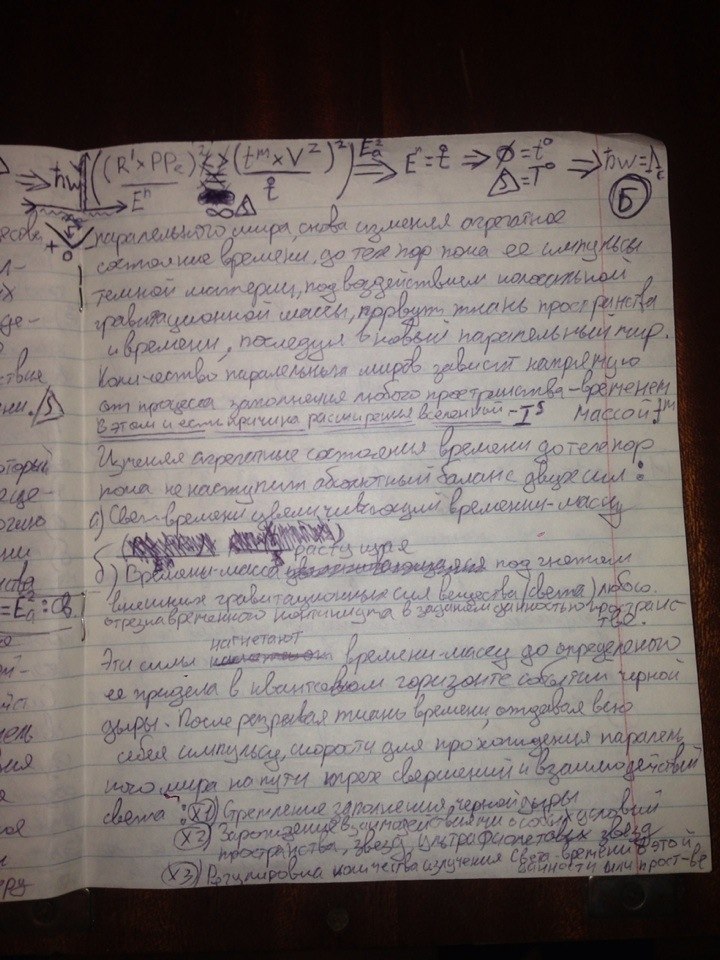 ⇒ ħw ((R¹×PPc)² / Eⁿ <> (t^m × V²)² / t̊) E²a ⇒ Eⁿ = t̊ ⇒ Ø = t° ⇒ ħw =
∞ S = T°
Б
+ 0
паралельного мира, снова изменяя агрегатное
состояние времени, до тех пор пока ее импульсы
темной материи, под воздействием колосальной
гравитационной массы, порвут ткань пространства
и времени, последуя в новый паралельный мир.
Количество паралельных миров зависит напрямую
от процеса заполнения любого пространства-временем
в этом и есть причина расширения вселенной - I^S массой t^m
Изучая агрегатные состояния времени до тех пор
пока не наступит абсолютный баланс двух сил:
а) Свет-времени увеличивающий времени-массу
растущая
б) Времени-масса под гнетом
внешних гравитационных сил вещества (света) любого
отрезка временного континиума в заданом данностью пространс-
тве.
нагнетают
Эти силы времени-массу до определеного
ее придела в квантовом горизонте событий черной
дыры. После разрывая ткань времени, отдавая всю
себя импульсу, скорости для прохождения паралель
ного мира на пути трех свершений и взаимодействий
света: X1) Стремление заполнения черной дыры
X2) Зарождение взаимодействиями особых условий
пространства, звезд, ультрафиолетовых звезд
X3) Регулировка количества излучения света-времени в этой
данности или прост-ве